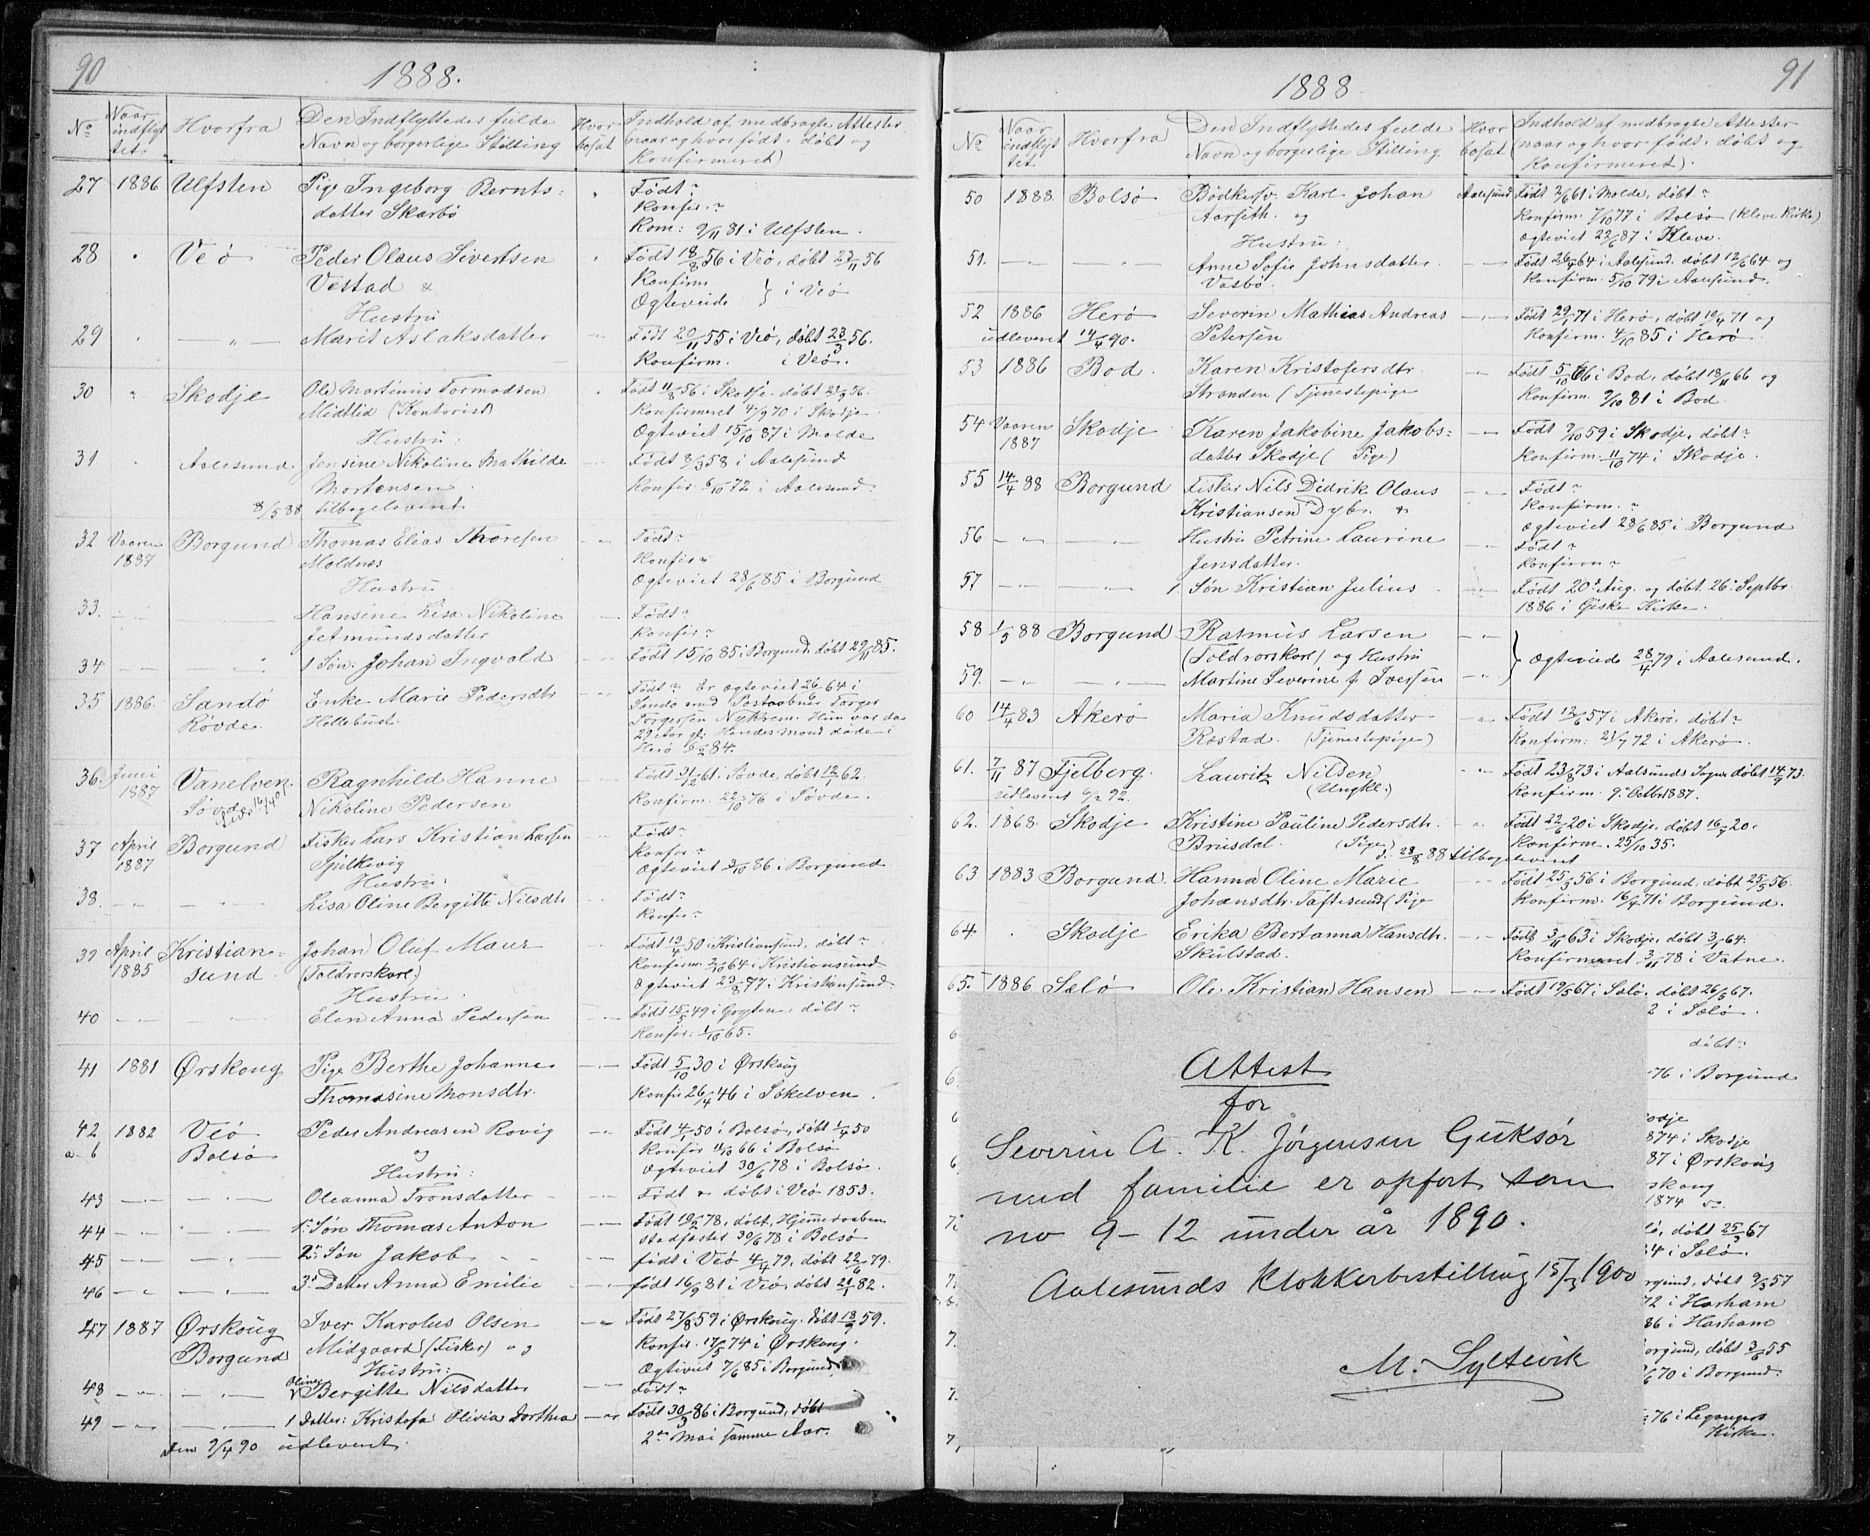 90
1888.
No
Naar indflyttet.
Hvorfra
Den Indflyttedes fulde Navn og borgerlige Stilling
Hvor bosat
Indhold af medbragte Attester (naar og hvor født, døbt og Konfirmeret)
27 1886 Ulfsten Pige Ingeborg Bernts: " Født ?
datter Skarbø Konfir. ?
Kom: 9/11 81 i Ulfsten.
28 " Veø Peder Olaus Sivertsen " Født 18/8 56 i Veø, døbt 23/11 56
Vestad & Konfirm
Hustru Ogteviede } i Veø
29 " —"— Marit Aslaksdatter —"— Født 20/11 55 i Veø, døbt 23/3 56.
Konfirm. i Veø.
30 " Skodje Ole Martinus Tormodsen " Født 11/8 56 i Skodje, døbt 21/9 56.
Midtlid (Kontorist) Konfirmeret 4/9 70 i Skodje
Hustru: Ogteviet 15/10 87 i Molde
31 " Aalesund Jensine Nikoline Mathilde —"— Født 8/3 58 i Aalesund
Mortensen Konfir 6/10 72 i Aalesund.
8/5 88 tilbageleveret
32 Vaaren 1887 Borgund Thomas Elias Thoresen —"— Født ?
Moldnes Konfir ?
Hustru Ogteviet 28/6 85 i Borgund
33. —"— —"— Hansine Lisa Nikoline —"— Født ?
Jetmundsdatter Konfir ?
34 —"— —"— 1 Søn: Johan Ingvald —"— Født 15/10 85 i Borgund, døbt 29/11 85.
35 1886. Sandø Enke Marie Pedersdtr —"— Født ? Er ogteviet 26/6 64 i
Røvde Hellebust. Sandø med Postaabner Torger
Torgersen Nykrem. Hun var da
29 Aar gl. Hendes Mand døde i
Herø 6/2 84.
36. Juni 1887 Vanelven Ragnhild Hanne —"— Født 31/12 61 i Søvde, døbt 12/1 62.
Søvde Nikoline Pedersen Konfirm. 22/10 76 i Søvde.
37 April 1887 Borgund Fisker Lars Kristian Larsen —"— Født ?
Spilkevig Konfir ?
Hustru: Ogteviet 3/10 86 i Borgund
38. —"— —"— Lisa Oline Bergitte Nilsdtr —"— Født ?
Konfir ?
39 April 1885 Kristian= Johan Oluf Maur —"— Født 13/4 50 i Kristiansund, døbt ?
sund (Toldrorskarl) Konfirm. 2/10 64 i Kristiansund
Hustru Ogteviet 23/8 77 i Kristiansund
40 —"— —"— Elen Anna Pedersen —"— Født 15/5 49 i Gryten, døbt ?
Konfir: 1/10 65.
41 1881 Ørskoug Pige Berthe Johanne —"— Født 5/10 30 i Ørskoug
Thomasine Monsdtr. Konfir 26/4 46 i Søkelven.
42 a-b 1882 Veø Peder Andreasen Rovig —"— Født 4/1 50 i Bolsø, døbt 1/4 50
Bolsø og Konfir 11/10 66 i Bolsø
Hustru: Ogteviet 30/6 78 i Bolsø.
43 —"— —"— Oleanna Tronsdatter —"— Født & døbt i Veø 1853.
44 —"— —"— 1. Søn Thomas Anton —"— Født 19/2 78, døbt, Hjemmedaaben
stadfæstet 30/6 78 i Bolsø
45 —"— —"— 2. Søn Jakob —"— født i Veø 4/4 79, døbt 22/6 79.
46 —"— —"— 3. Datter Anna Emilie —"— født 16/9 81 i Veø, døbt 21/1 82.
47 1887 Ørskoug Iver Karolus Olsen —"— Født 27/8 59 i Ørskoug, døbt 18/9 59.
Borgund Midgaard (Fisker) og Konfir. 17/5 74 i Ørskoug.
Hustru: Ogteviet 7/6 85 i Borgund
48 —"— —"— Oline Bergitte Nilsdatter —"— Født ?
49 —"— —"— 1 Datter: Kristofa Olivia Dorthea —"— Født 30/3 86 i Borgund, døbt
Den 9/4 90 udleveret. 2den Mai samme Aar.
91
1888
No
Naar indflyttet.
Hvorfra
Den Indflyttedes fulde Navn og borgerlige Stilling
Hvor bosat
Indhold af medbragte Attester (naar og hvor født, døbt og Konfirmeret).
50 1888. Bolsø Bødkersv. Karl Johan Aalesund Født 2/6 61 i Molde, døbt ?
Aarseth. og Konfirm. 7/10 77 i Bolsø (Kleve Kirke)
Hustru: Ogteviet 29/6 87 i Kleve.
51. —"— —"— Anne Sofie Johnsdatter —"— Født 26/4 64 i Aalesund. døbt 12/6 64 og
Vasbø. Konfirm. 5/10 79 i Aalesund.
52 1886 Herø Severin Mathias Andreas —"— Født 29/1 71 i Herø, døbt 10/4 71 og
udleveret 14/4 90. Petersen Konfirm. 4/10 85 i Herø
53 1886 Bod. Karen Kristofersdtr. —"— Født 5/10 66 i Bod, døbt 18/11 66 og
Stranden (Tjenestepige Konfirm. 9/10 81 i Bod.
54 Vaaren 1887 Skodje Karen Jakobine Jakobs= —"— Født 7/10 59 i Skodje, døbt ?
datter Skodje (Pige) Konfirm. 11/10 74 i Skodje.
55 14/4 88 Borgund Fisker Nils Didrik Olaus —"— Født ?
Kristiansen Dyb. & Konfirm. ?
Ogteviet 28/6 85 i Borgund
56 —"— —"— Hustru Petrine Laurine —"— Født ?
Jensdatter. Konfirm ?
57 —"— —"— 1 Søn Kristian Julius —"— Født 20de Aug. og døbt 26. Septbr.
1886 i Giske Kirke.
58 1/5 88 Borgund Rasmus Larsen —"—
(Toldrorskarl) og Hustru } Ogteviede 28/4 79 i Aalesund.
59. —"— —"— Martine Severine f. Iversen —"—
60 14/4 83 Akerø Maria Knudsdatter —"— Født 12/6 57 i Akerø, døbt ?
Rostad. (Tjenestepige) Konfirm: 21/7 72 i Akerø.
61. 7/11 87 Fjelberg. Lauritz Nilsen " Født 23/8 73 i Aalsunds Sogn døbt 14/9 73.
udleveret 6/2 92. (Ungkl.) Konfirm. 9. Octbr 1887.
62. 1868. Skodje Kristine Pauline Pedersdtr. " Født 22/6 20 i Skodje, døbt 16/7 20.
Brusdal. (Pige) Konfirm. 25/10 35.
d. 28/8 88 tilbageleveret
63 1883 Borgund. Hanna Oline Marie —"— Født 25/3 56 i Borgund, døbt 25/5 56.
Johansdtr. Taftesund (Pige Konfirm. 16/4 71 i Borgund.
64. " Skodje Erika Bertanna Hansdtr. —"— Født 3/11 63 i Skodje, døbt 3/1 64.
Skulstad. Konfirmeret 3/11 78 i Vatne.
65. 1886 Sølø Ole Kristian Hansen —"— Født 19/5 67 i Sølø, døbt 26/5 67.
2 i Sølø.
døbt:
76 i Borgund
odje
874 i Skodje
87 i Ørskoug
skoug
1874
lø, døbt 25/3 67
4 i Sølø.
rgund, døbt 9/3 57
72 i Harham
86 i Harham
orgund, døbt 3/6 55
70 i Borgund.
76 i Leganger
Kirke.
Attest
for
Severin A. K. Jørgensen Guksør
med familie er opført som
no 9-12 under år 1890.
Aalesunds Klokkerbestilling 15/3 1900
M. Syltevik